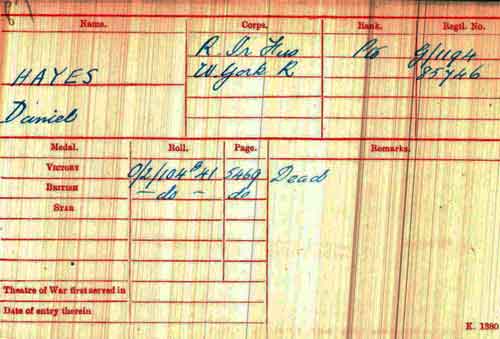 Name. Corps. Rank. Regtl. No.
R Ir Fus Pte G/1194
HAYES W York R 85746
Daniel
Medal. Roll. Page. Remarks.
VICTORY O/2/104 B 41 5469 Dead
BRITISH - do - do
STAR
Theatre of War first served in
Date of entry therein
K. 1380